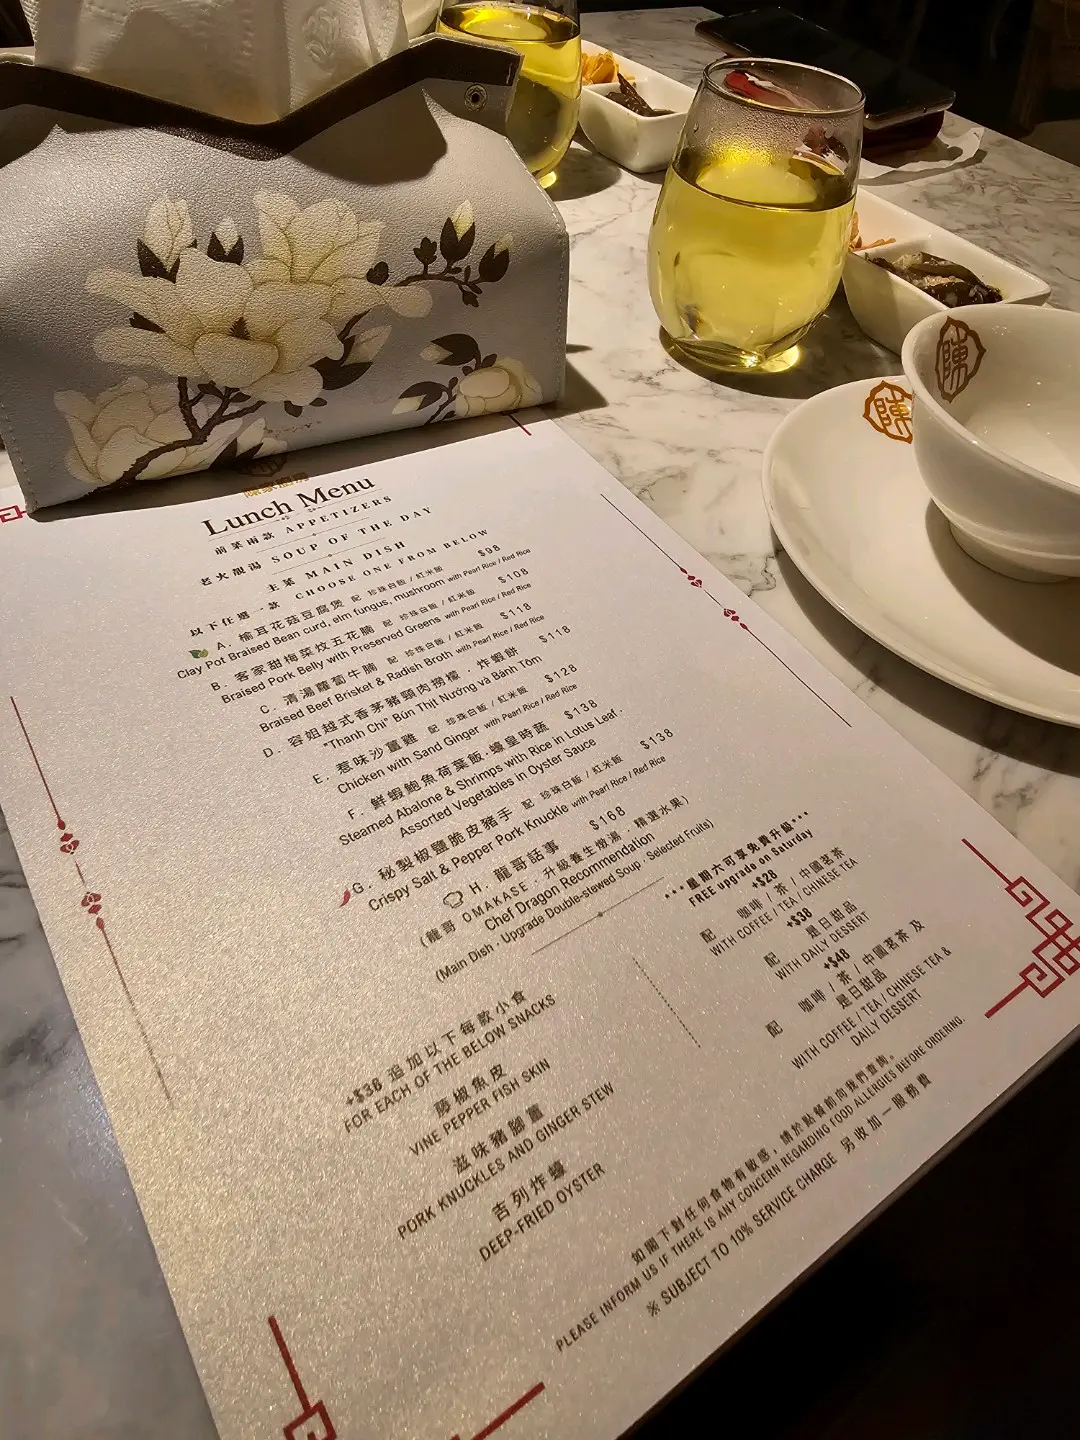 Lunch Menu
前菜兩款 APPETIZERS
老火靚湯 SOUP OF THE DAY
主菜 MAIN DISH
以下任選一款 CHOOSE ONE FROM BELOW
A. 榆耳花菇豆腐煲 配 珍珠白飯 / 紅米飯 $98
Clay Pot Braised Bean curd, elm fungus, mushroom with Pearl Rice / Red Rice
B. 客家甜梅菜炆五花腩 配 珍珠白飯 / 紅米飯 $108
Braised Pork Belly with Preserved Greens with Pearl Rice / Red Rice
C. 清湯蘿蔔牛腩 配 珍珠白飯 / 紅米飯 $118
Braised Beef Brisket & Radish Broth with Pearl Rice / Red Rice
D. 容姐越式香茅豬頸肉撈檬 · 炸蝦餅 $118
"Thanh Chi" Bún Thịt Nướng và Bánh Tôm
E. 惹味沙薑雞 配 珍珠白飯 / 紅米飯 $128
Chicken with Sand Ginger with Pearl Rice / Red Rice
F. 鮮蝦鮑魚荷葉飯·蠔皇時蔬 $138
Steamed Abalone & Shrimps with Rice in Lotus Leaf .
Assorted Vegetables in Oyster Sauce
G. 秘製椒鹽脆皮豬手 配 珍珠白飯 / 紅米飯 $138
Crispy Salt & Pepper Pork Knuckle with Pearl Rice / Red Rice
H. 龍哥話事 $168
(龍哥 OMAKASE · 升級養生燉湯 · 精選水果)
Chef Dragon Recommendation
(Main Dish · Upgrade Double-stewed Soup · Selected Fruits)
***星期六可享免費升級***
FREE upgrade on Saturday
+$28
配 咖啡 / 茶 / 中國茗茶
WITH COFFEE / TEA / CHINESE TEA
+$38
配 是日甜品
WITH DAILY DESSERT
+$48
配 咖啡 / 茶 / 中國茗茶 及
是日甜品
WITH COFFEE / TEA / CHINESE TEA &
DAILY DESSERT
+$38 追加以下每款小食
FOR EACH OF THE BELOW SNACKS
藤椒魚皮
VINE PEPPER FISH SKIN
滋味豬腳薑
PORK KNUCKLES AND GINGER STEW
吉列炸蠔
DEEP-FRIED OYSTER
如閣下對任何食物有敏感，請於點餐前向我們查詢。
PLEASE INFORM US IF THERE IS ANY CONCERN REGARDING FOOD ALLERGIES BEFORE ORDERING.
※ SUBJECT TO 10% SERVICE CHARGE 另收加一服務費
陳
陳